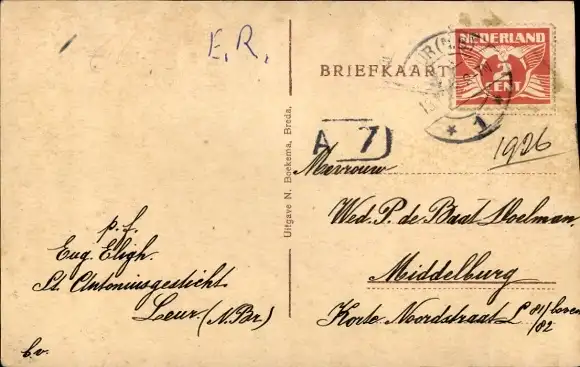 E.R.
BRIEFKAART
NEDERLAND
2
CENT
1
A 7
1926
Mevrouw
Wed. P. de Baat Moelman.
Middelburg
Korte Noordstraat L 81/boven
/82
p.f.
Eug. Eligh.
St. Antoniusgesticht
Leur. (N.Br.)
b.v.
Uitgave N. Boekema, Breda.